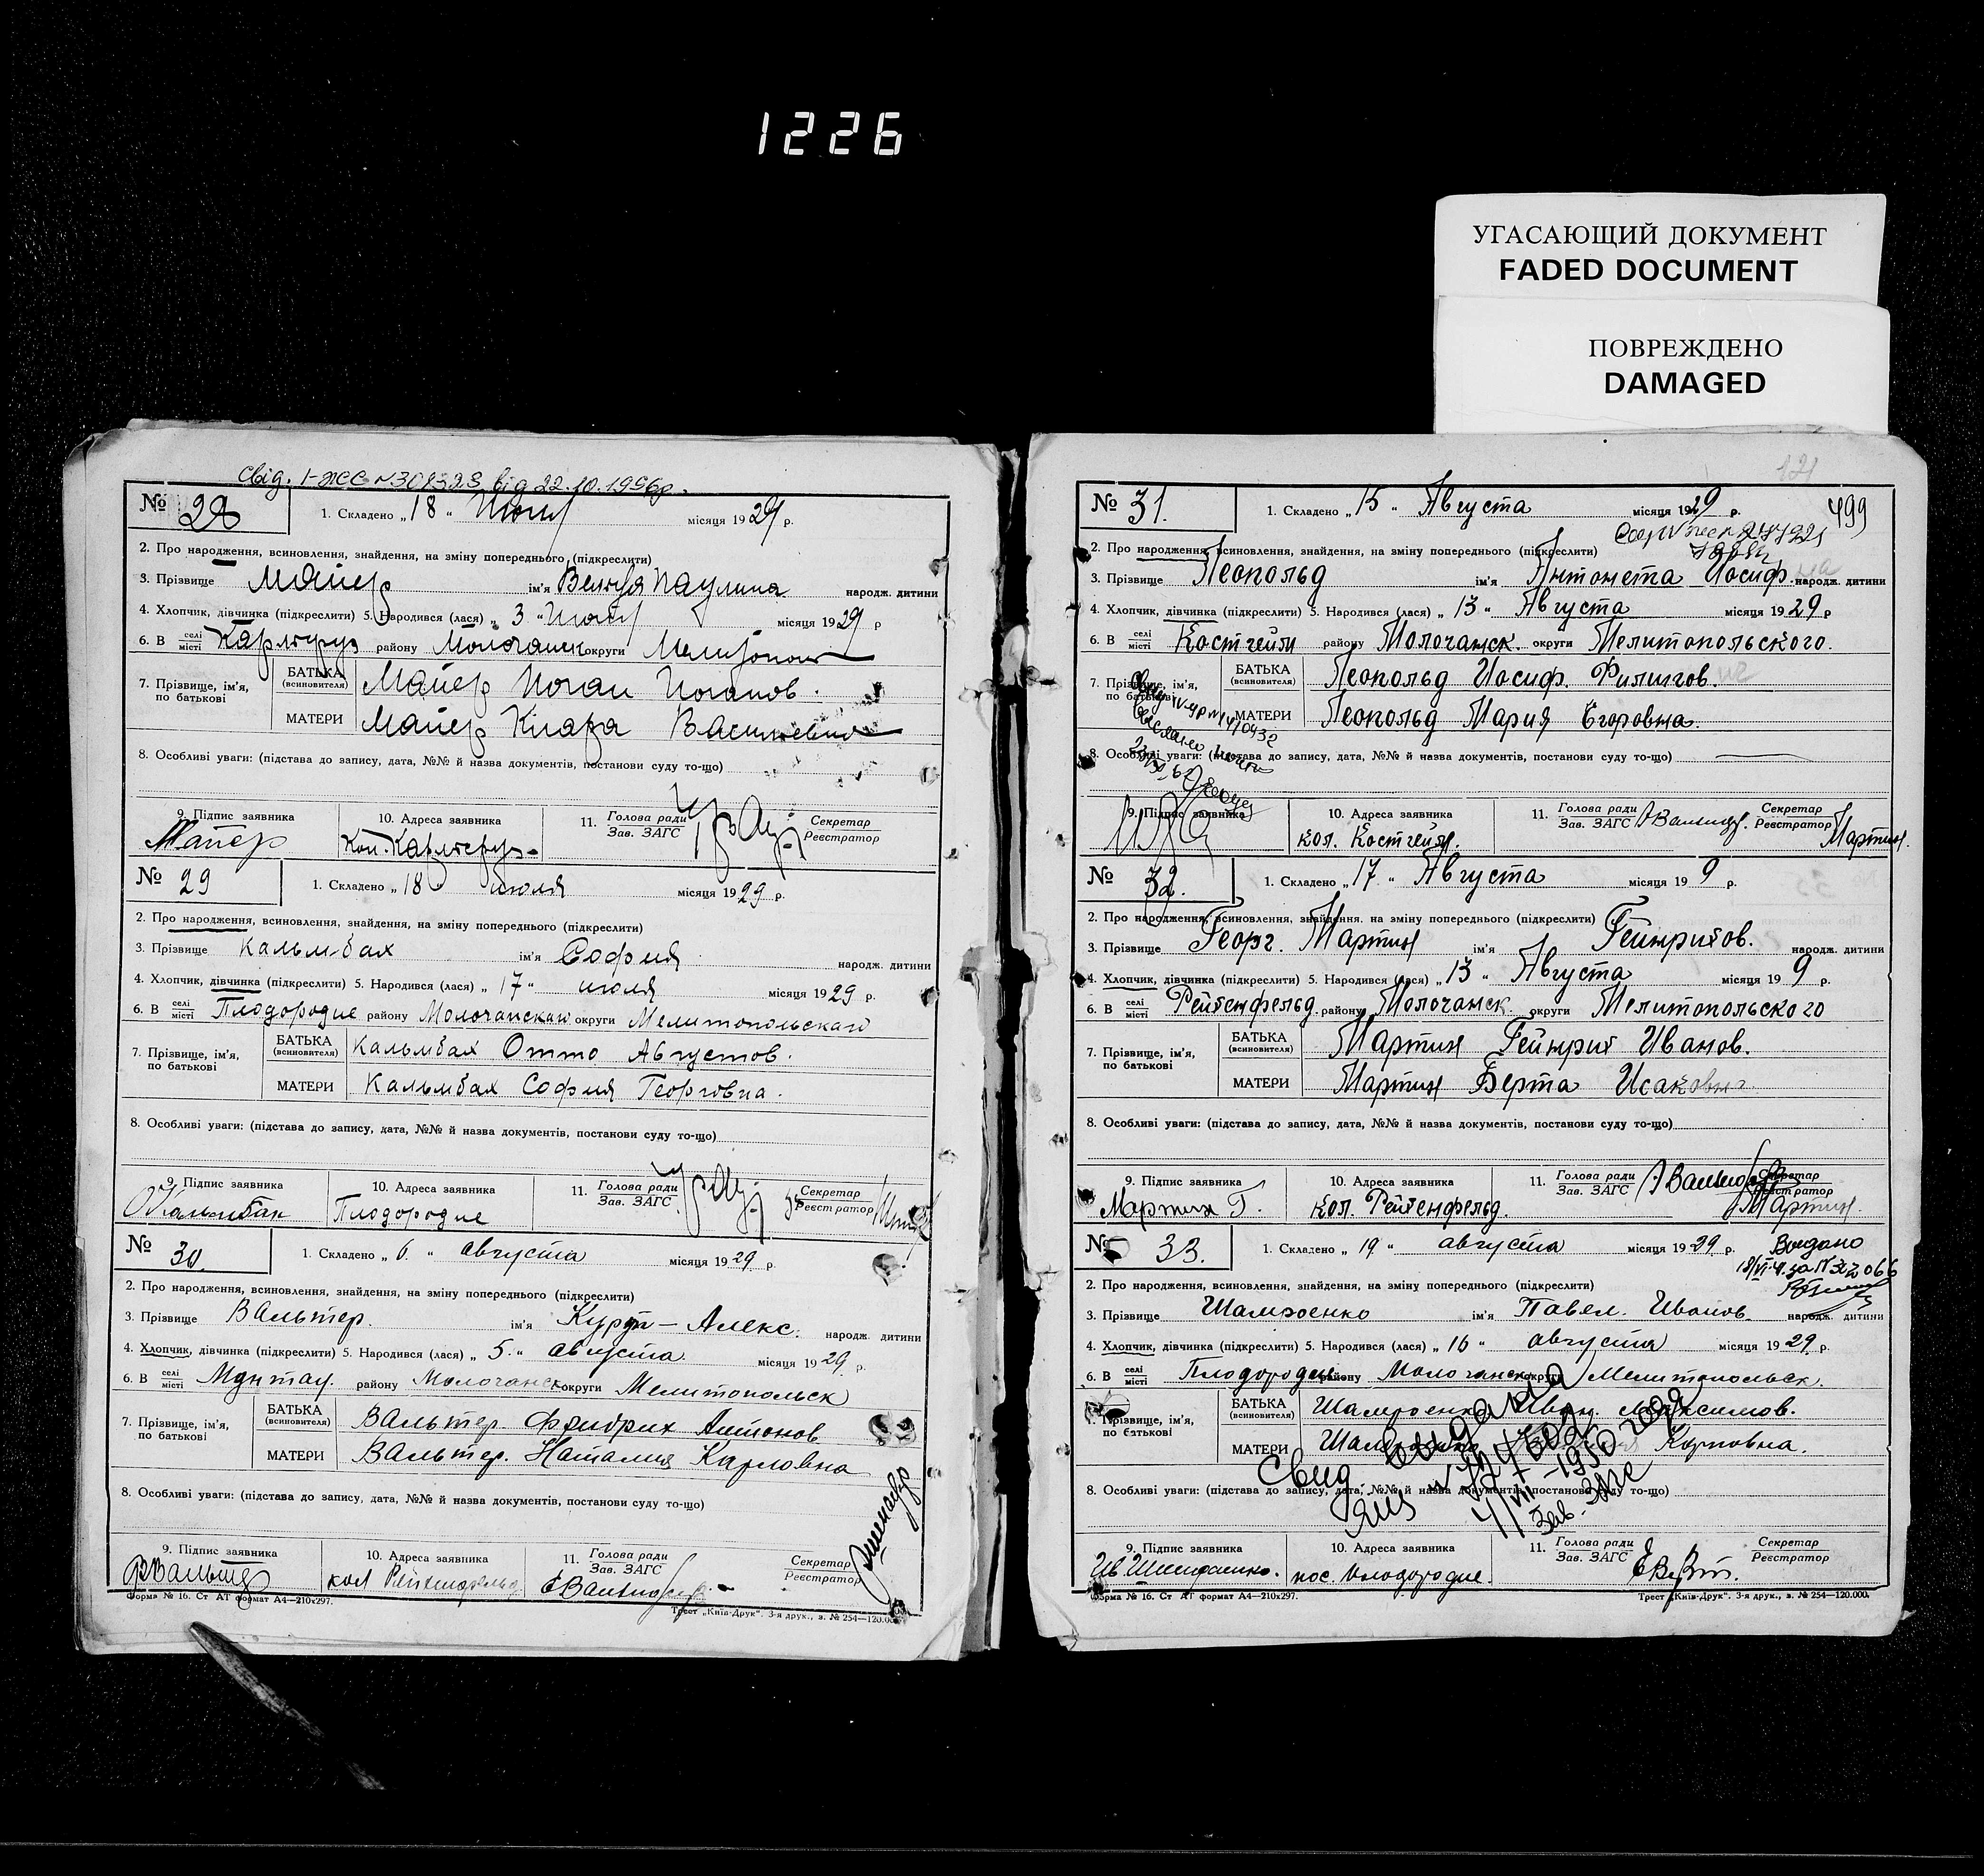 1226
УГАСАЮЩИЙ ДОКУМЕНТ
FADED DOCUMENT
ПОВРЕЖДЕНО
DAMAGED
Свід. І-ЖС № 308323 від 22.10.1996р.
№ 28
1. Складено „ 18 “ Июля місяця 1929 р.
2. Про народження, всиновлення, знайдення, на зміну попереднього (підкреслити)
3. Прізвище Майер ім'я Паулина народж. дитини
4. Хлопчик, дівчинка (підкреслити) 5. Народився (лася) „ 3 “ Июля місяця 1929 р
6. В селі місті Карлсруэ району Молочанск округи
7. Прізвище, ім'я, по батькові
БАТЬКА (всиновителя) Майер Иоган Иоганов.
МАТЕРИ Майер Клара Васильевна
8. Особливі уваги: (підстава до запису, дата, №№ й назва документів, постанови суду то-що)
9. Підпис заявника 10. Адреса заявника 11. Голова ради Зав. ЗАГС Секретар Реєстратор
Майер Кол. Карлсруэ
№ 29
1. Складено „ 18 “ июля місяця 1929 р.
2. Про народження, всиновлення, знайдення, на зміну попереднього (підкреслити)
3. Прізвище Кальмбах ім'я София народж. дитини
4. Хлопчик, дівчинка (підкреслити) 5. Народився (лася) „ 17 “ июля місяця 1929 р.
6. В селі місті Плодородие району Молочанскаго округи Мелитопольскаго
7. Прізвище, ім'я, по батькові
БАТЬКА (всиновителя) Кальмбах Отто Августов.
МАТЕРИ Кальмбах София Георговна.
8. Особливі уваги: (підстава до запису, дата, №№ й назва документів, постанови суду то-що)
9. Підпис заявника 10. Адреса заявника 11. Голова ради Зав. ЗАГС Секретар Реєстратор
О Кальмбах Плодородие
№ 30
1. Складено „ 6 “ августа місяця 1929 р.
2. Про народження, всиновлення, знайдення, на зміну попереднього (підкреслити)
3. Прізвище Вальтер. ім'я Курт – Алекс. народж. дитини
4. Хлопчик, дівчинка (підкреслити) 5. Народився (лася) „ 5 “ августа місяця 1929 р.
6. В селі місті Мунтау. району Молочанск округи Мелитопольск
7. Прізвище, ім'я, по батькові
БАТЬКА (всиновителя) Вальтер. Фридрих Антонов
МАТЕРИ Вальтер. Наталия Карловна
8. Особливі уваги: (підстава до запису, дата, №№ й назва документів, постанови суду то-що)
9. Підпис заявника 10. Адреса заявника 11. Голова ради Зав. ЗАГС Секретар Реєстратор
Ф Вальтер кол
Форма № 16. Ст АТ формат А4—210х297. Трест „Київ-Друк“. 3-я друк., з. № 254—120.000.
121
499
№ 31.
1. Складено „ 15 “ Августа місяця 1929 р.
2. Про народження, всиновлення, знайдення, на зміну попереднього (підкреслити)
3. Прізвище Леопольд ім'я Антонета Иосиф народж. дитини
4. Хлопчик, дівчинка (підкреслити) 5. Народився (лася) „ 13 “ Августа місяця 1929 р
6. В селі місті Костгейм району Молочанск. округи Мелитопольского.
7. Прізвище, ім'я, по батькові
БАТЬКА (всиновителя) Леопольд Иосиф. Филипов.
МАТЕРИ Леопольд Мария Егоровна.
8. Особливі уваги: (підстава до запису, дата, №№ й назва документів, постанови суду то-що)
9. Підпис заявника 10. Адреса заявника 11. Голова ради Зав. ЗАГС Секретар Реєстратор
кол. Костгейм. Мартин.
№ 32.
1. Складено „ 17 “ Августа місяця 19 9 р.
2. Про народження, всиновлення, знайдення. на зміну попереднього (підкреслити)
3. Прізвище Георг. Мартин ім'я Гейнрихов. народж. дитини
4. Хлопчик, дівчинка (підкреслити) 5. Народився (лася) „ 13 “ Августа місяця 19 9 р.
6. В селі місті Рейхенфельд. району Молочанск. округи Мелитопольского
7. Прізвище, ім'я, по батькові
БАТЬКА (всиновителя) Мартин Гейнрих Иванов.
МАТЕРИ Мартин Берта Исаковна
8. Особливі уваги: (підстава до запису, дата, №№ й назва документів, постанови суду то-що)
9. Підпис заявника 10. Адреса заявника 11. Голова ради Зав. ЗАГС Секретар Реєстратор
Мартин Г. кол. Рейхенфельд. Мартин.
№ 33.
1. Складено „ 19 “ августа місяця 1929 р.
Выдано
2. Про народження, всиновлення, знайдення, на зміну попереднього (підкреслити)
3. Прізвище ім'я Павел. Иванов народж. дитини
4. Хлопчик, дівчинка (підкреслити) 5. Народився (лася) „ 16 “ августа місяця 1929 р.
6. В селі місті Плодородие району Молочанск округи Мелитопольск.
7. Прізвище, ім'я, по батькові
БАТЬКА (всиновителя) Иван. Максимов.
МАТЕРИ Карповна.
Свид. выдана
8. Особливі уваги: (підстава до запису, дата, №№ й назва документів, постанови суду то-що)
4/VII-1950 года
Зав. Загс
9. Підпис заявника 10. Адреса заявника 11. Голова ради Зав. ЗАГС Секретар Реєстратор
пос. Плодородие.
Форма № 16. Ст АТ формат А4—210х297. Трест „Київ-Друк“. 3-я друк., з. № 254—120.000.